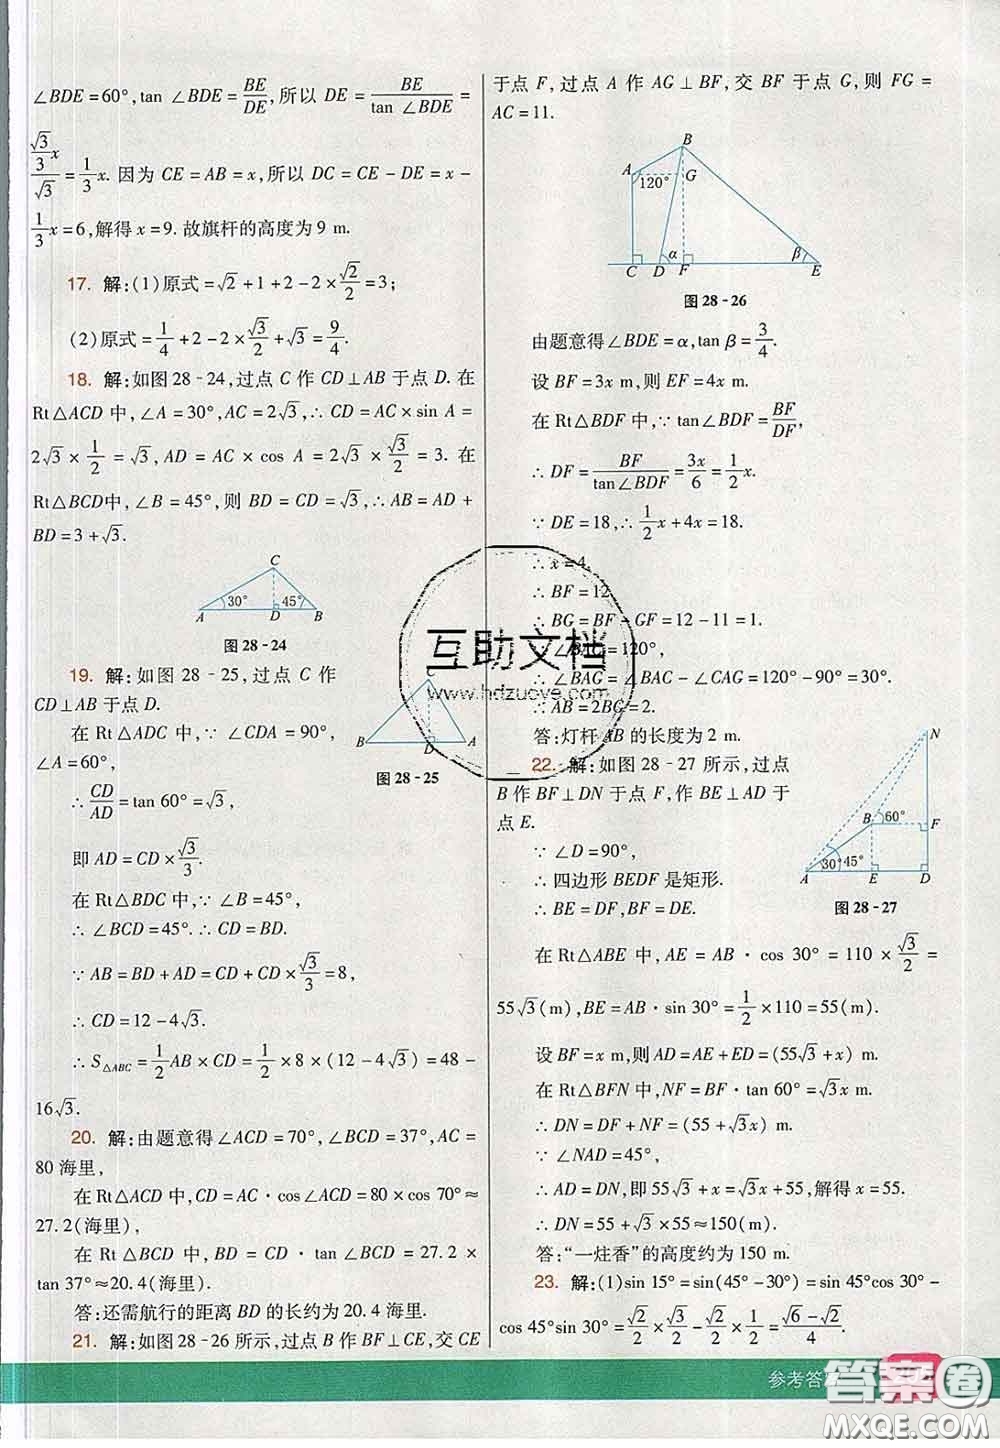 ∠BDE=60°,tan ∠BDE=BE/DE,所以 DE=BE/tan ∠BDE=
(√3/3 x)/√3=1/3 x. 因为 CE=AB=x,所以 DC=CE-DE=x-
1/3 x=6,解得 x=9. 故旗杆的高度为 9 m.
17. 解:(1)原式=√2+1+2-2×√2/2=3;
(2)原式=1/4+2-2×√3/2+√3=9/4.
18. 解:如图 28-24,过点 C 作 CD⊥AB 于点 D. 在
Rt△ACD 中,∠A=30°,AC=2√3,∴ CD=AC×sin A=
2√3×1/2=√3,AD=AC×cos A=2√3×√3/2=3. 在
Rt△BCD中,∠B=45°,则 BD=CD=√3,∴AB=AD+
BD=3+√3.
C
30°
45°
A
D
B
图 28-24
19. 解:如图 28-25,过点 C 作
CD⊥AB 于点 D.
在 Rt△ADC 中,∵∠CDA=90°,
∠A=60°,
∴ CD/AD=tan 60°=√3,
即 AD=CD×√3/3.
在 Rt△BDC 中,∵ ∠B=45°,
∴ ∠BCD=45°. ∴CD=BD.
∵ AB=BD+AD=CD+CD×√3/3=8,
∴ CD=12-4√3.
∴ S△ABC=1/2 AB×CD=1/2×8×(12-4√3)=48-
16√3.
C
B
D
A
图 28-25
20. 解:由题意得∠ACD=70°,∠BCD=37°,AC=
80 海里,
在 Rt△ACD 中,CD=AC·cos∠ACD=80×cos 70°≈
27.2(海里),
在 Rt△BCD 中,BD=CD·tan ∠BCD=27.2×
tan 37°≈20.4(海里).
答:还需航行的距离 BD 的长约为 20.4 海里.
21. 解:如图 28-26 所示,过点 B 作 BF⊥CE,交 CE
于点 F,过点 A 作 AG⊥BF,交 BF 于点 G,则 FG=
AC=11.
B
A
120°
G
α
β
C
D
F
E
图 28-26
由题意得∠BDE=α,tan β=3/4.
设 BF=3x m,则 EF=4x m.
在 Rt△BDF 中,∵tan∠BDF=BF/DF,
∴ DF=BF/tan∠BDF=3x/6=1/2 x.
∵ DE=18,∴1/2 x+4x=18.
∴x=4.
∴ BF=12.
∴ BG=BF-GF=12-11=1.
∵ ∠BAC=120°,
∴ ∠BAG=∠BAC-∠CAG=120°-90°=30°.
∴AB=2BG=2.
答:灯杆 AB 的长度为 2 m.
22. 解:如图 28-27 所示,过点
B 作 BF⊥DN 于点 F,作 BE⊥AD 于
点 E.
∵ ∠D=90°,
∴ 四边形 BEDF 是矩形.
∴ BE=DF,BF=DE.
N
B
60°
F
30°
45°
A
E
D
图 28-27
在 Rt△ABE 中,AE=AB·cos 30°=110×√3/2=
55√3(m),BE=AB·sin 30°=1/2×110=55(m).
设 BF=x m,则 AD=AE+ED=(55√3+x) m.
在 Rt△BFN 中,NF=BF·tan 60°=√3x m.
∴ DN=DF+NF=(55+√3x) m.
∵ ∠NAD=45°,
∴ AD=DN,即 55√3+x=√3x+55,解得 x=55.
∴ DN=55+√3×55≈150(m).
答:“一炷香”的高度约为 150 m.
23. 解:(1)sin 15°=sin(45°-30°)=sin 45°cos 30°-
cos 45°sin 30°=√2/2×√3/2-√2/2×1/2=(√6-√2)/4.
互助文档
www.hdzuoye.com
参考答案
答案圈
MXQE.COM